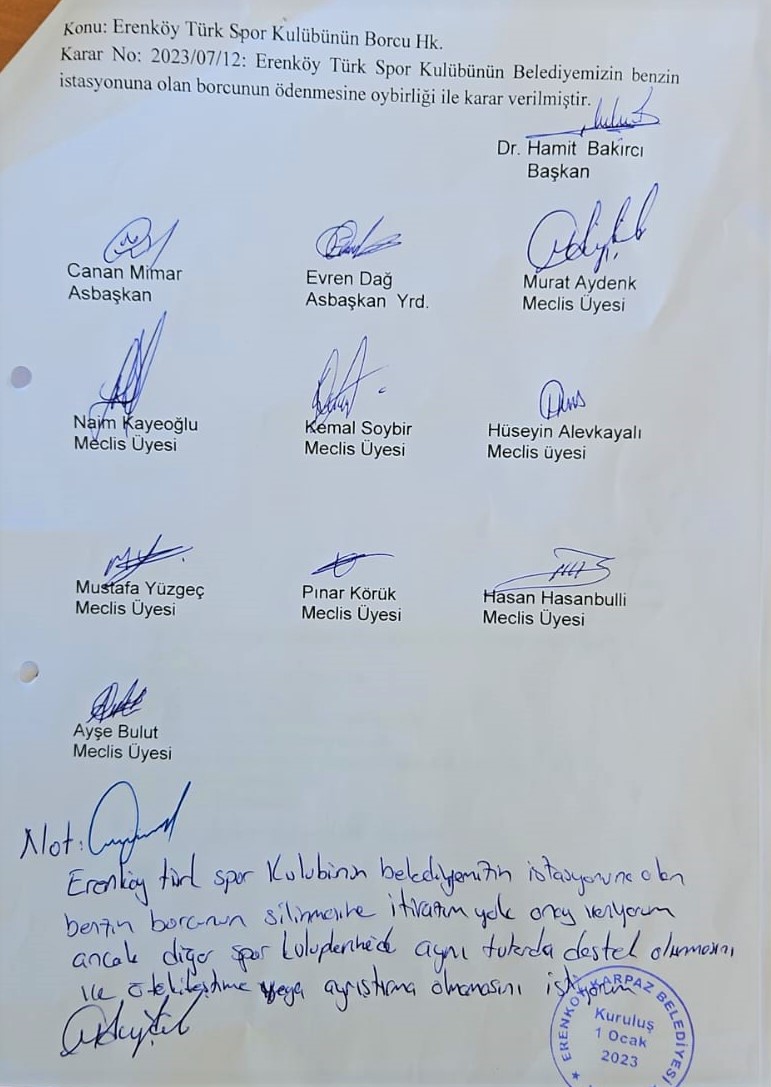 Konu: Erenköy Türk Spor Kulübünün Borcu Hk.
Karar No: 2023/07/12: Erenköy Türk Spor Kulübünün Belediyemizin benzin
istasyonuna olan borcunun ödenmesine oybirliği ile karar verilmiştir.
Dr. Hamit Bakirci
Başkan
Canan Mimar
Asbaşkan
Evren Dağ
Asbaşkan Yrd.
Murat Aydenk
Meclis Üyesi
Naim Kayeoğlu
Meclis Üyesi
Kemal Soybir
Meclis Üyesi
Hüseyin Alevkayalı
Meclis üyesi
Mustafa Yüzgeç
Meclis Üyesi
Pınar Körük
Meclis Üyesi
Hasan Hasanbulli
Meclis Üyesi
Ayşe Bulut
Meclis Üyesi
Not:
Erenköy türk spor Kulubinin belediyemizin istasyonuna olan
benzin borcunun silinmesine itirazım yok onay veriyorum
ancak diğer spor kuluplerinede aynı tutarda destek olunmasını
ve ötekileştirme veya ayrıştırma olmamasını istiyorum
ERENKÖY KARPAZ BELEDİYESİ
Kuruluş
1 Ocak
2023